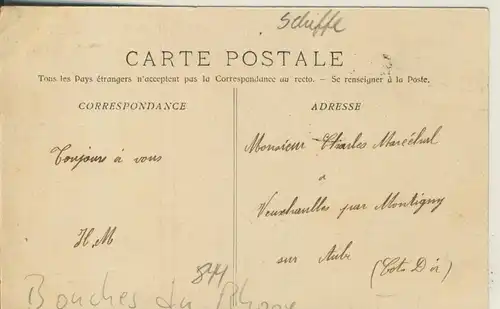 Schiffe
CARTE POSTALE
Tous les Pays étrangers n'acceptent pas la Correspondance au recto. — Se renseigner à la Poste.
CORRESPONDANCE
Toujours à vous
H.M
ADRESSE
Monsieur Charles Maréchal
à
Veuxhaulles par Montigny
sur Aube
(Côte D'or)
844
Bouches du Rhone